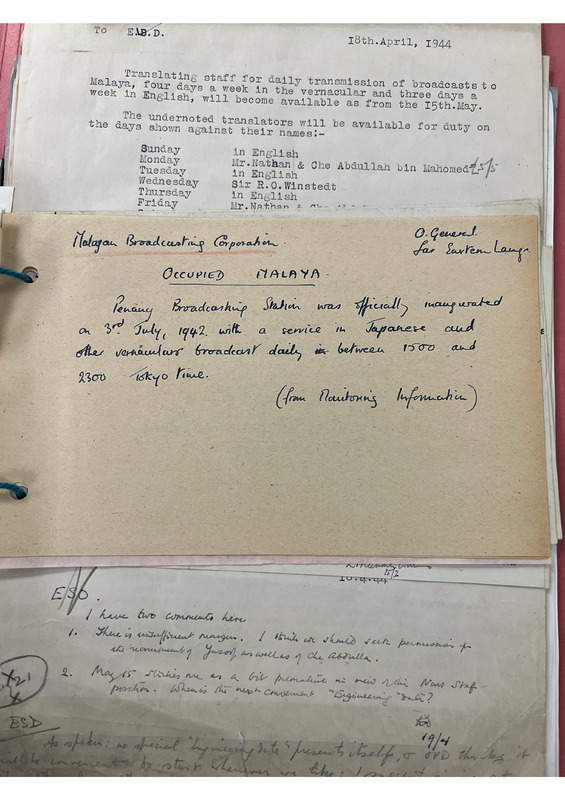 To EAB.D.
18th.April, 1944
Translating staff for daily transmission of broadcasts to
Malaya, four days a week in the vernacular and three days a
week in English, will become available as from the 15th.May.
The undernoted translators will be available for duty on
the days shown against their names:-
Sunday in English
Monday Mr.Nathan & Che Abdullah bin Mahomed
Tuesday in English
Wednesday Sir R.O.Winstedt
Thursday in English
Friday Mr.Nathan & Che
Malayan Broadcasting Corporation.
O. General
Far Eastern Langs.
OCCUPIED MALAYA.
Penang Broadcasting Station was officially inaugurated
on 3rd July, 1942 with a service in Japanese and
other vernaculars broadcast daily between 1500 and
2300 Tokyo time.
(from Monitoring Information)
15/2
10.4.44
ESO.
I have two comments here
1. There is insufficient margin. I think we should seek permission for
the recruitment of Yusoof, as well as of Che Abdulla.
2. May 15 strikes me as a bit premature in view of the News Staff
position. When is the next convenient "Engineering" date?
19/4
ESD
As spoken: no special "Engineering date" presents itself, & OPD
will be convenient to start whenever we like;